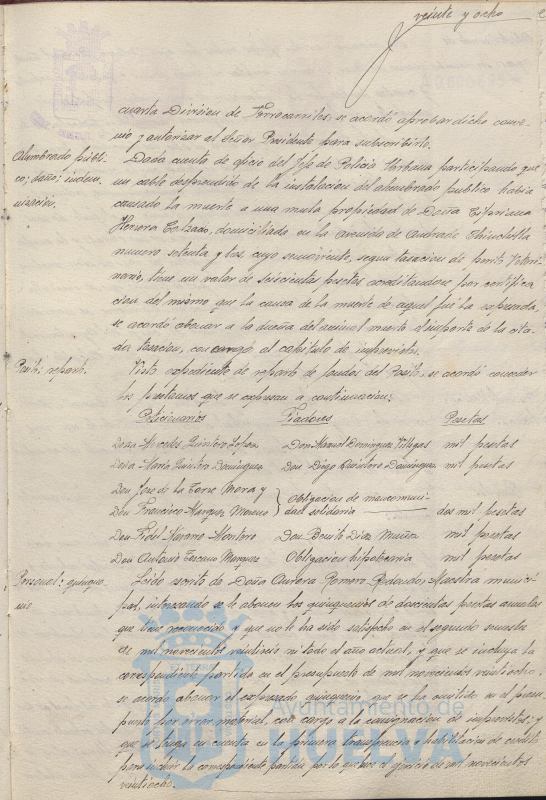 veinte y ocho
cuarta Division de Ferrocarriles, se acordó aprobar dicho conve-
nio y autorizar al Señor Presidente para subscribirlo.
Alumbrado públi-
co; daño; indem-
nización;
Dada cuenta de oficio del Jefe de Policia Urbana participando que
un cable desprendido de la instalacion del alumbrado publico habia
causado la muerte a una mula propiedad de Doña Cipriana
Herrera domiciliada en la avenida de Andrade Chinchilla
numero setenta y dos, cuyo semoviente, segun tasacion de perito Veteri-
nario, tiene un valor de seiscientas pesetas acreditandose por certifica
cion del mismo que la causa de la muerte de aquel fué la expresada,
se acordó abonar a la dueña del animal muerto el importe de la cita-
da tasacion, con cargo al capitulo de imprevistos.
Posito: reparto.
Visto expediente de reparto de fondos del Posito, se acordó conceder
los préstamos que se expresan a continuacion:
Peticionarios Fiadores Pesetas
Doña Mercedes Quintero Lopez Don Manuel Dominguez Villegas mil pesetas
Doña Maria Quintero Dominguez Don Diego Quintero Dominguez mil pesetas
Don Jose de la Torre Mora y
Don Francisco Marquez Moreno } Obligacion de mancomuni-
dad solidaria dos mil pesetas
Don Fidel Navarro Montero Don Benito Diaz Muñoz mil pesetas
Don Antonio Toscano Marquez Obligacion hipotecaria mil pesetas
Personal: quinque-
nio
Leido escrito de Doña Aurora Romero Redondo, Maestra munici-
pal, interesando se le abonen los quinquenios de doscientas pesetas anuales
que tiene reconocido y que no le ha sido satisfecho en el segundo semestre
de mil novecientos veintiseis ni todo el año actual, y que se incluya la
correspondiente partida en el presupuesto de mil novecientos veintiocho,
se acordó abonar el expresado quinquenio que se ha omitido en el presu-
puesto por error material, con cargo a la consignacion de imprevistos; y
que se tenga en cuenta en la primera transferencia o habilitacion de credito
para incluir la correspondiente partida por lo que hace al ejercicio de mil novecientos
veintiocho.
Ayuntamiento de
HUELVA